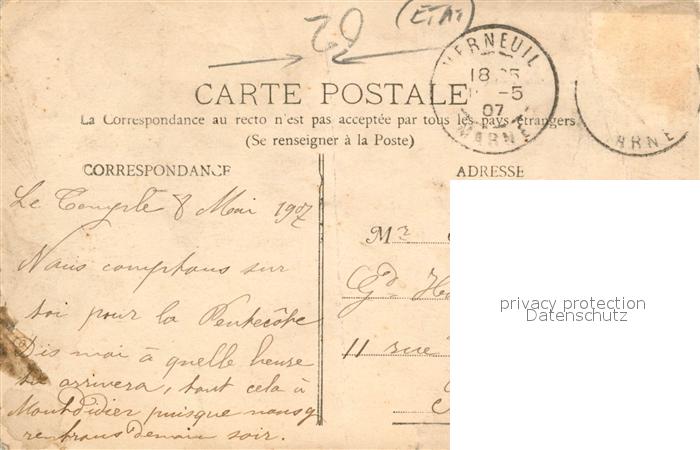 20
(ETAT)
VERNEUIL
18
-5
07
MARNE
ARNE
CARTE POSTALE
La Correspondance au recto n'est pas acceptée par tous les pays étrangers
(Se renseigner à la Poste)
CORRESPONDANCE
ADRESSE
Le 8 Mai 1907
Nous comptons sur
toi pour la Pentecôte
Dis moi à quelle heure
tu arrivera, tout cela à
Montdidier puisque nous y
rentrons demain soir.
Mr
Gd
11 rue
privacy protection
Datenschutz